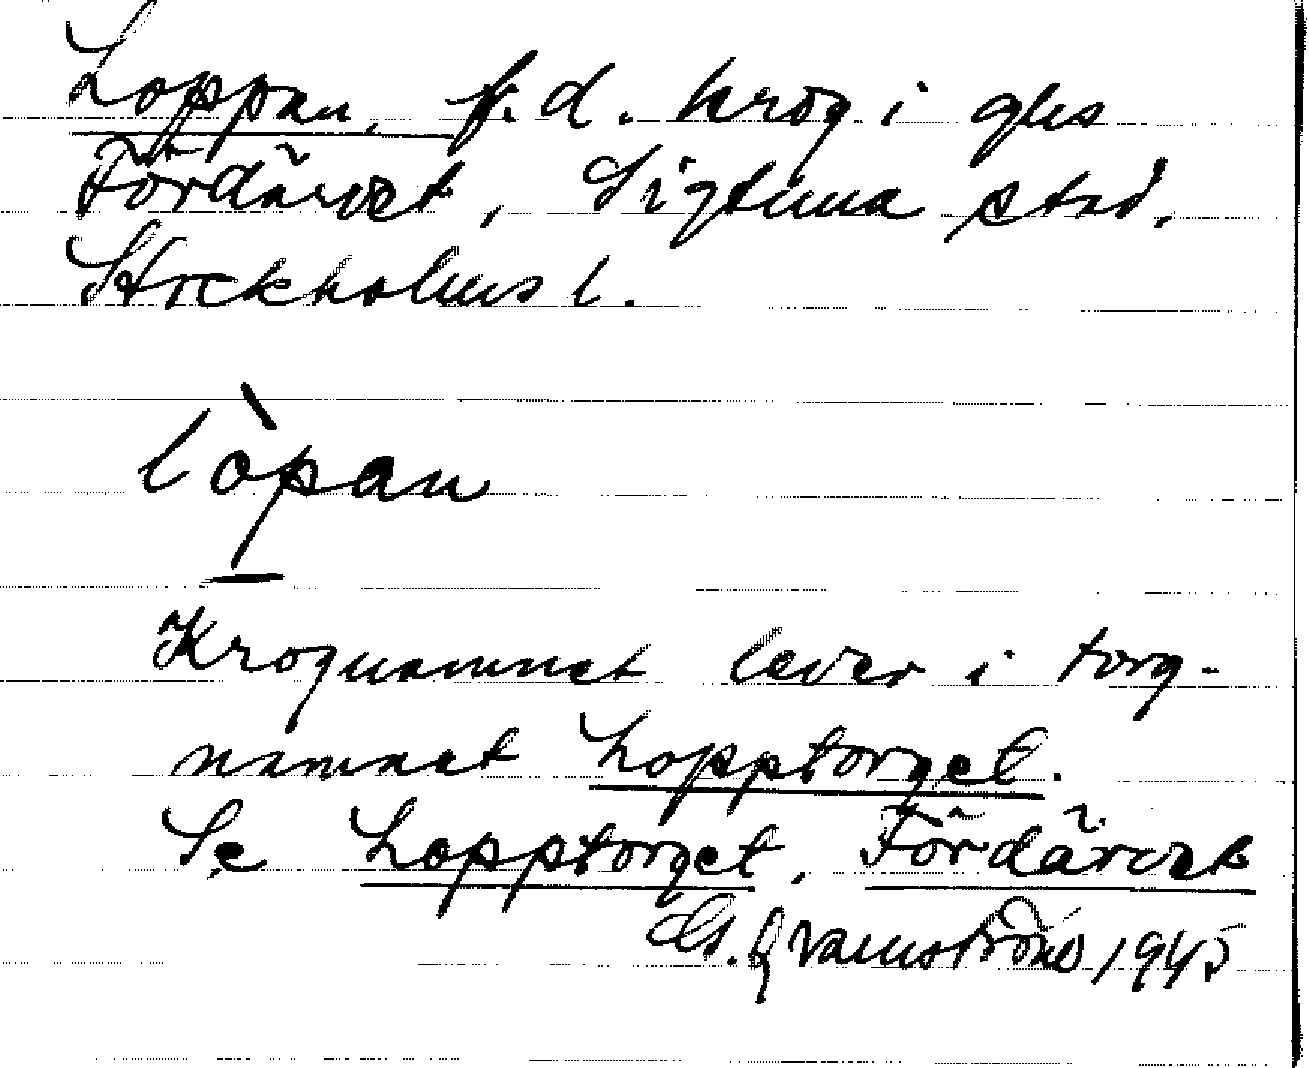 Loppan, f.d. krog i gles
Fördärvet, Sigtuna stad,
Stockholms l.
lòpan
Krognamnet lever i torg-
namnet Lopptorget.
Se Lopptorget, Fördärvet
G. Qvarnström 1945